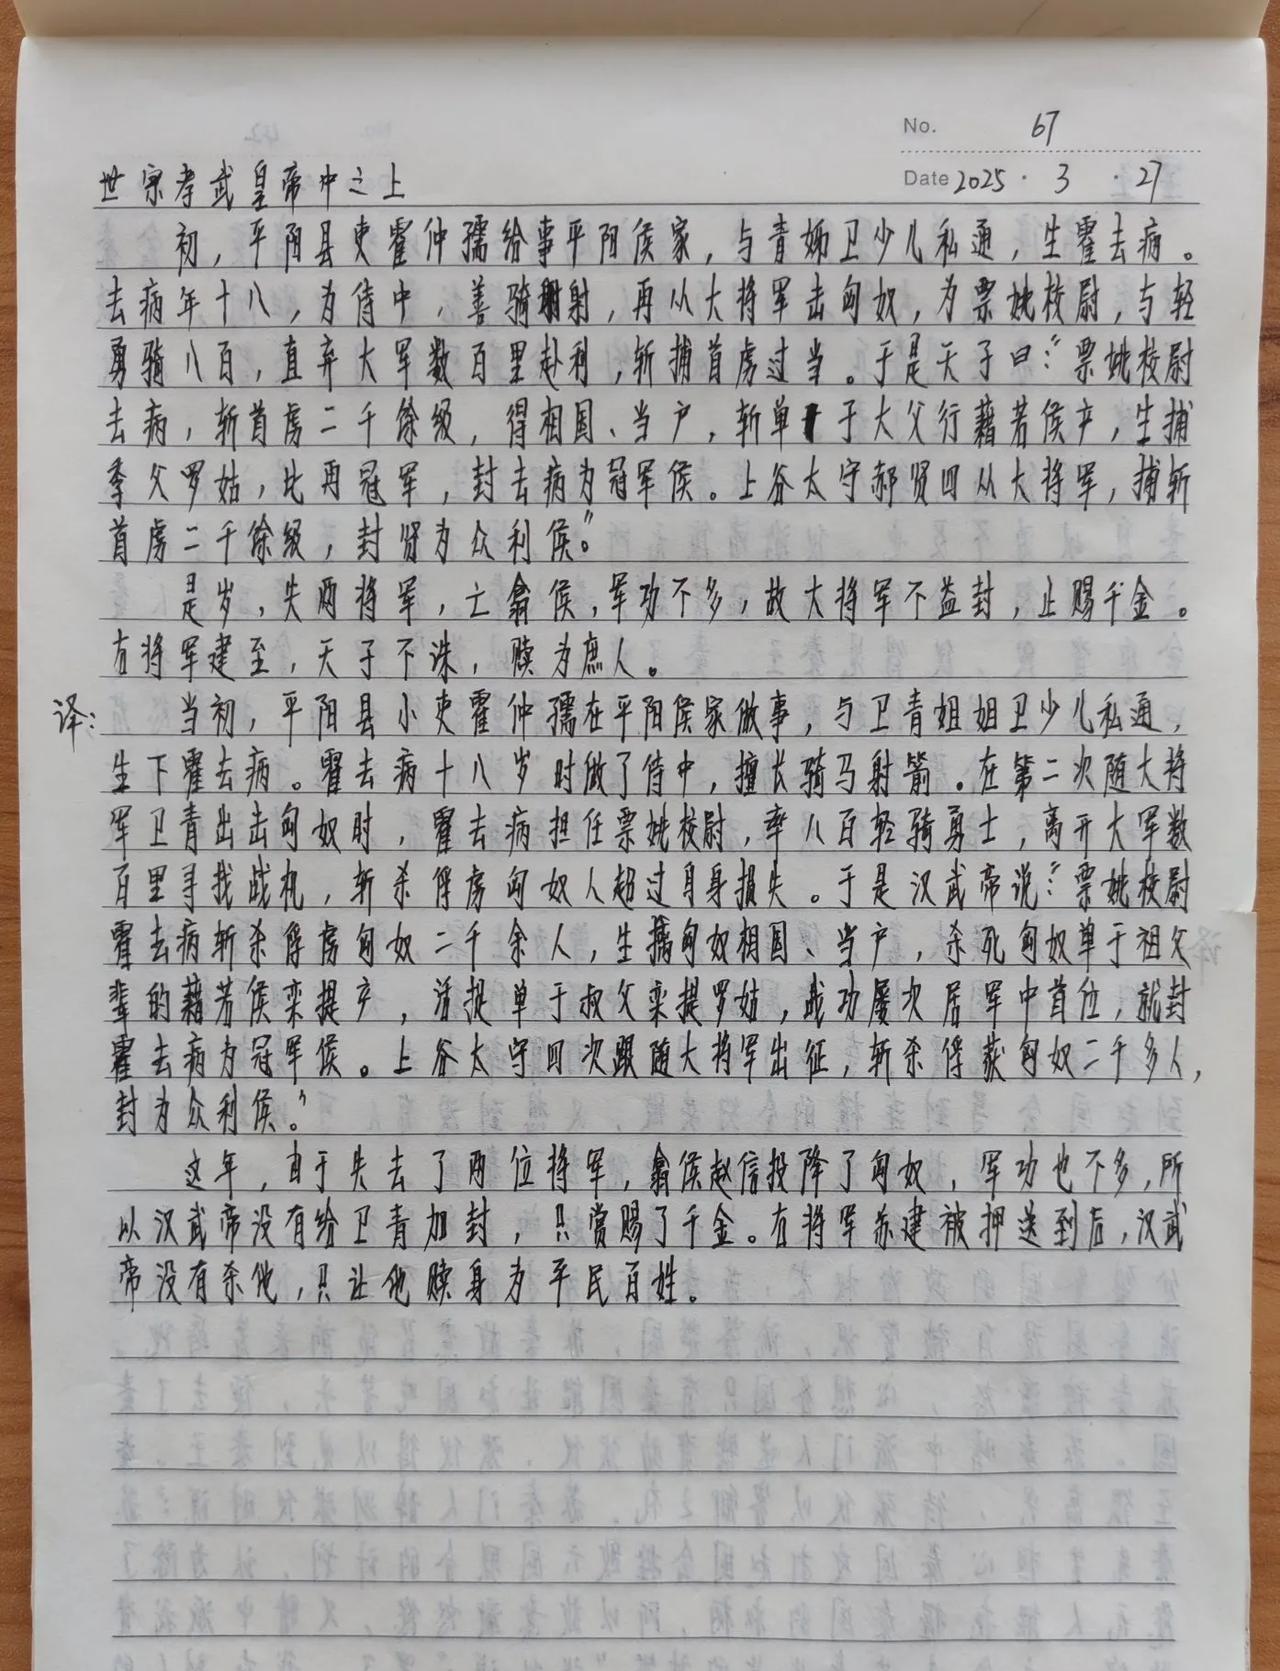 No. 67
世宗孝武皇帝中之上
Date 2025 · 3 · 27
初，平阳县吏霍仲孺给事平阳侯家，与青姊卫少儿私通，生霍去病。
去病年十八，为侍中，善骑射，再从大将军击匈奴，为票姚校尉，与轻
勇骑八百，直弃大军数百里赴利，斩捕首虏过当。于是天子曰：“票姚校尉
去病，斩首虏二千余级，得相国、当户，斩单于大父行藉若侯产，生捕
季父罗姑，比再冠军，封去病为冠军侯。上谷太守郝贤四从大将军，捕斩
首虏二千余级，封贤为众利侯。”
是岁，失两将军，亡翕侯，军功不多，故大将军不益封，止赐千金。
右将军建至，天子不诛，赎为庶人。
译：当初，平阳县小吏霍仲孺在平阳侯家做事，与卫青姐姐卫少儿私通，
生下霍去病。霍去病十八岁时做了侍中，擅长骑马射箭。在第二次随大将
军卫青出击匈奴时，霍去病担任票姚校尉，率八百轻骑勇士，离开大军数
百里寻找战机，斩杀俘虏匈奴人超过自身损失。于是汉武帝说：“票姚校尉
霍去病斩杀俘虏匈奴二千余人，生擒匈奴相国、当户，杀死匈奴单于祖父
辈的藉若侯栾提产，活捉单于叔父栾提罗姑，战功屡次居军中首位，就封
霍去病为冠军侯。上谷太守四次跟随大将军出征，斩杀俘获匈奴二千多人，
封为众利侯。”
这年，由于失去了两位将军，翕侯赵信投降了匈奴，军功也不多，所
以汉武帝没有给卫青加封，只赏赐了千金。右将军苏建被押送到后，汉武
帝没有杀他，只让他赎身为平民百姓。